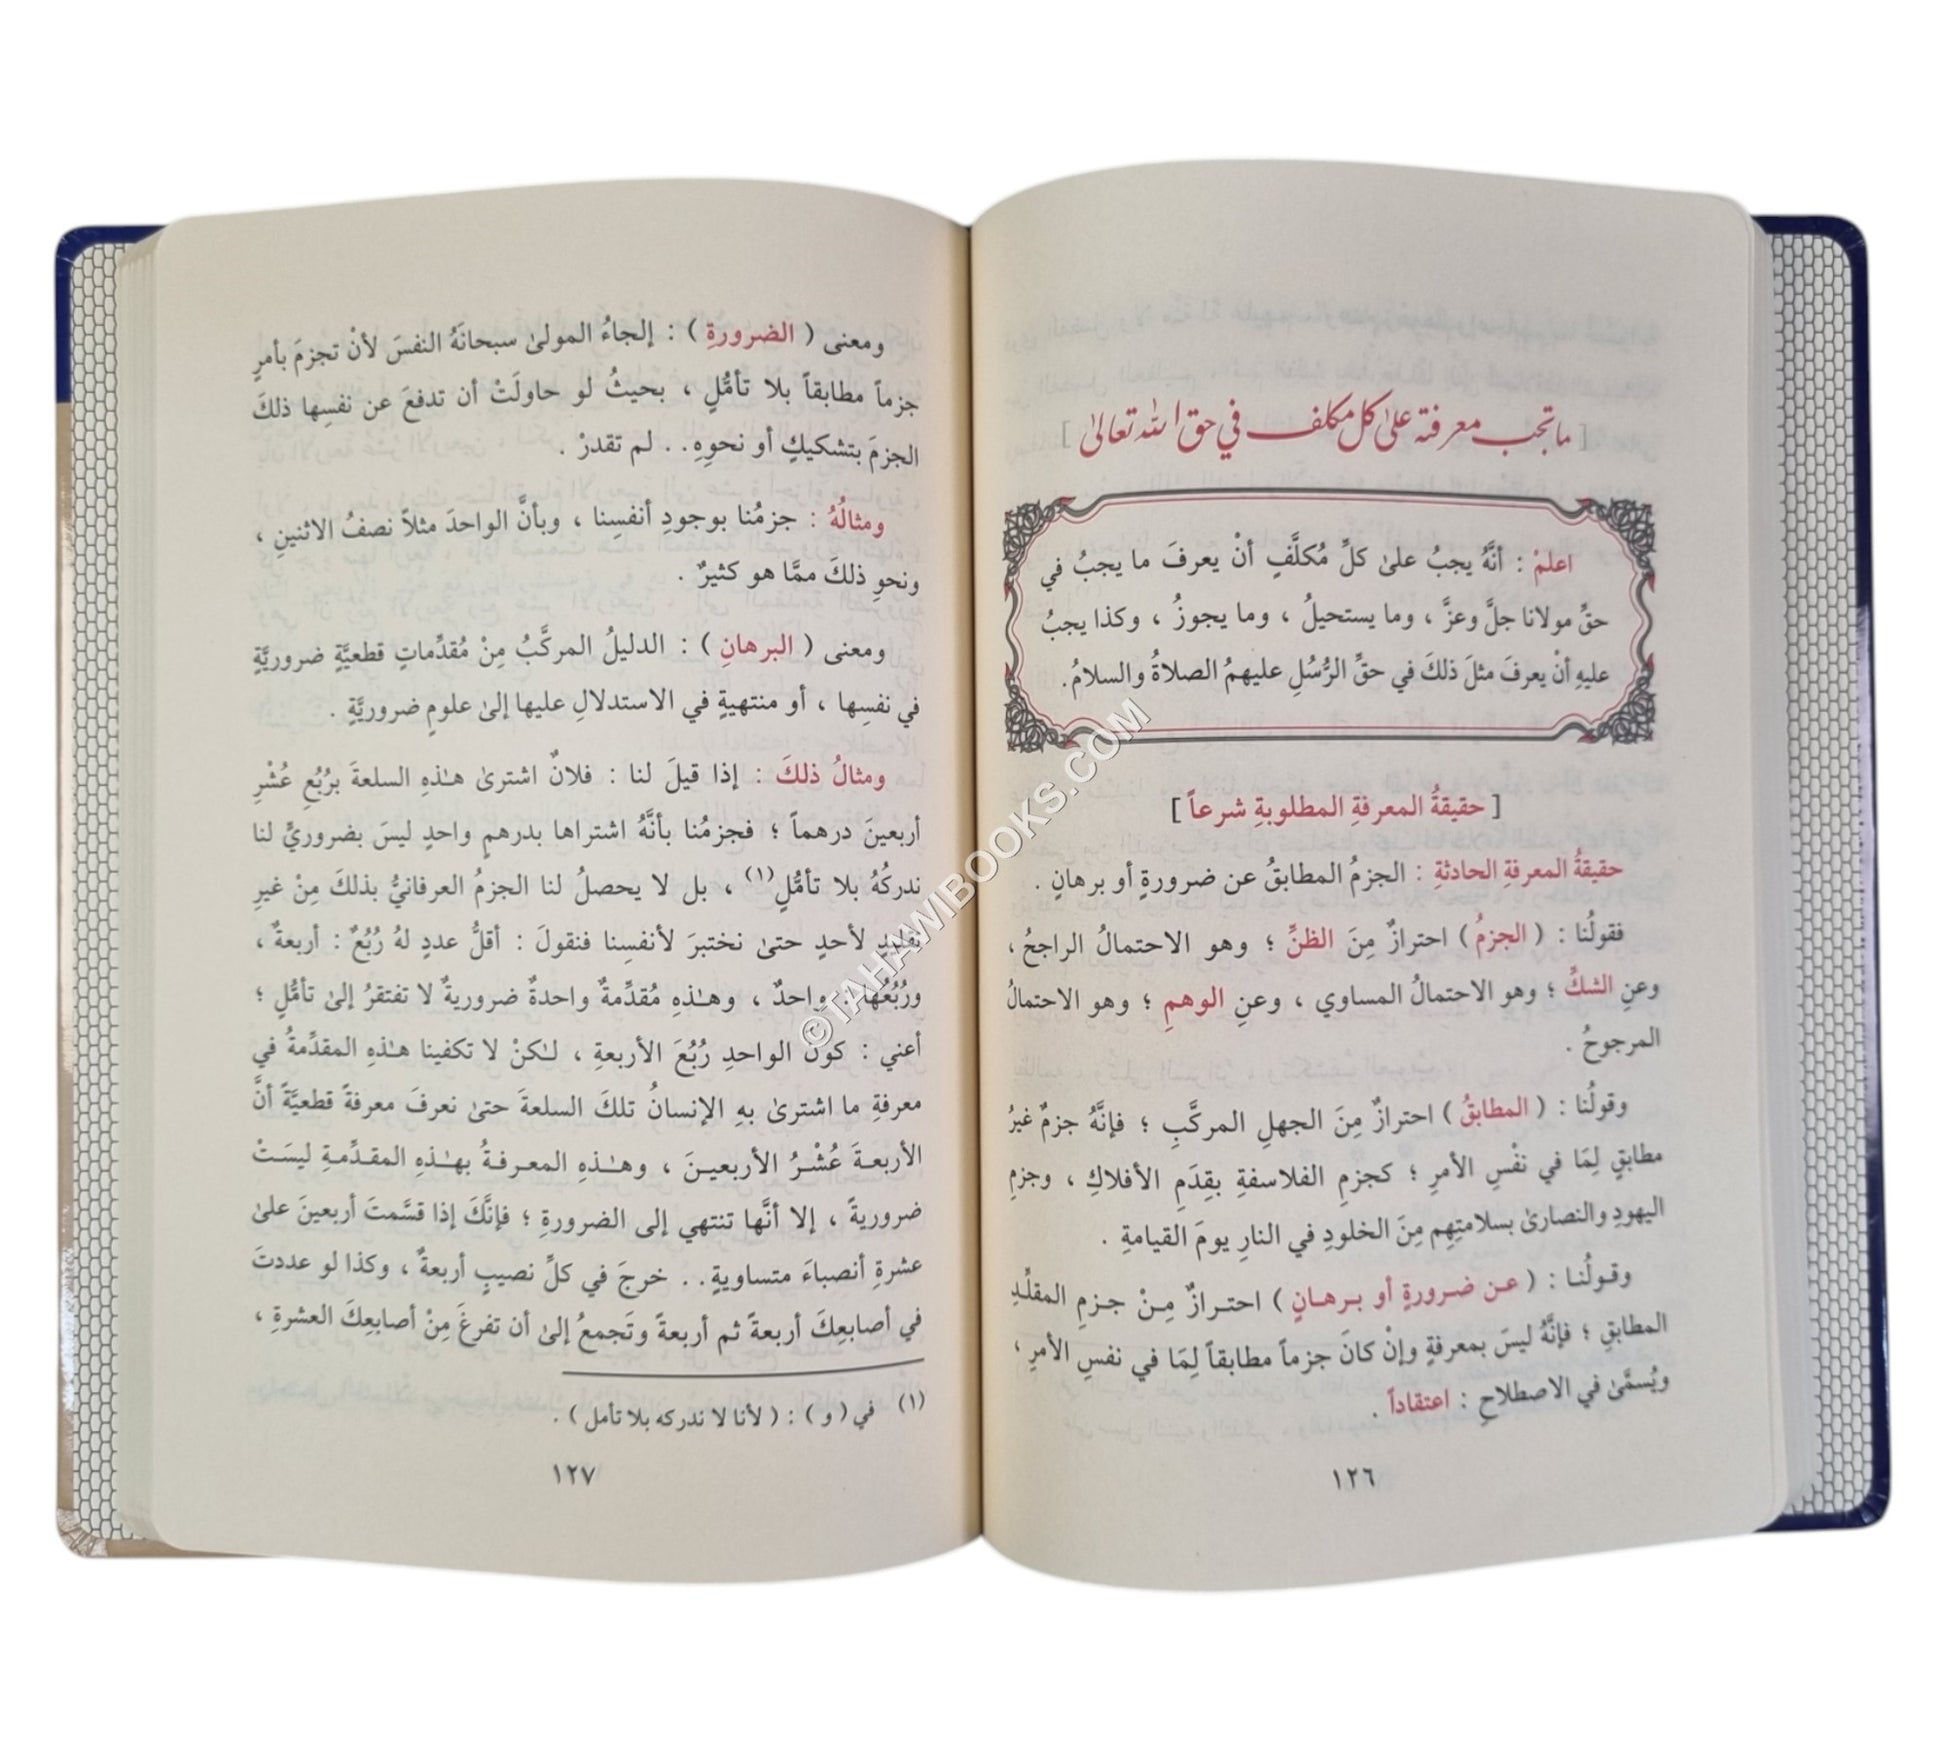 [ ما تجب معرفته على كل مكلف في حق الله تعالى ]
اعلمْ : أنَّهُ يجبُ علىٰ كلِّ مُكلَّفٍ أنْ يعرفَ ما يجبُ في
حقِّ مولانا جلَّ وعزَّ ، وما يستحيلُ ، وما يجوزُ ، وكذا يجبُ
عليهِ أنْ يعرفَ مثلَ ذلكَ في حقِّ الرُّسُلِ عليهمُ الصلاةُ والسلامُ.
[ حقيقةُ المعرفةِ المطلوبةِ شرعاً ]
حقيقةُ المعرفةِ الحادثةِ : الجزمُ المطابقُ عن ضرورةٍ أو برهانٍ .
فقولُنا : ( الجزمُ ) احترازٌ مِنَ الظنِّ ؛ وهو الاحتمالُ الراجحُ ،
وعنِ الشكِّ ؛ وهو الاحتمالُ المساوي ، وعنِ الوهمِ ؛ وهو الاحتمالُ
المرجوحُ .
وقولُنا : ( المطابقُ ) احترازٌ مِنَ الجهلِ المركَّبِ ؛ فإنَّهُ جزمٌ غيرُ
مطابقٍ لِمَا في نفْسِ الأمرِ ؛ كجزمِ الفلاسفةِ بقِدَمِ الأفلاكِ ، وجزمِ
اليهودِ والنصارىٰ بسلامتِهِم مِنَ الخلودِ في النارِ يومَ القيامةِ .
وقولُنا : ( عن ضرورةٍ أو برهانٍ ) احترازٌ مِنْ جزمِ المقلِّدِ
المطابقِ ؛ فإنَّهُ ليسَ بمعرفةٍ وإنْ كانَ جزماً مطابقاً لِمَا في نفسِ الأمرِ ،
ويُسمَّىٰ في الاصطلاحِ : اعتقاداً .
١٢٦
ومعنى ( الضرورةِ ) : إلجاءُ المولىٰ سبحانَهُ النفسَ لأنْ تجزمَ بأمرٍ
جزماً مطابقاً بلا تأمُّلٍ ، بحيثُ لو حاولَتْ أن تدفعَ عن نفسِها ذلكَ
الجزمَ بتشكيكٍ أو نحوِهِ.. لم تقدرْ .
ومثالُهُ : جزمُنا بوجودِ أنفسِنا ، وبأنَّ الواحدَ مثلاً نصفُ الاثنينِ ،
ونحوِ ذلكَ ممَّا هو كثيرٌ .
ومعنى ( البرهانِ ) : الدليلُ المركَّبُ مِنْ مُقدِّماتٍ قطعيَّةٍ ضروريَّةٍ
في نفسِها ، أو منتهيةٍ في الاستدلالِ عليها إلىٰ علومٍ ضروريَّةٍ .
ومثالُ ذلكَ : إذا قيلَ لنا : فلانٌ اشترىٰ هـٰذهِ السلعةَ برُبُعِ عُشْرِ
أربعينَ درهماً ؛ فجزمُنا بأنَّهُ اشتراها بدرهمٍ واحدٍ ليسَ بضروريٍّ لنا
ندركُهُ بلا تأمُّلٍ(١) ، بل لا يحصلُ لنا الجزمُ العرفانيُّ بذلكَ مِنْ غيرِ
تقليدٍ لأحدٍ حتىٰ نختبرَ لأنفسِنا فنقولَ : أقلُّ عددٍ لهُ رُبُعٌ : أربعةٌ ،
ورُبُعُها : واحدٌ ، وهـٰذهِ مُقدِّمةٌ واحدةٌ ضروريةٌ لا تفتقرُ إلىٰ تأمُّلٍ ؛
أعني : كونَ الواحدِ رُبُعَ الأربعةِ ، لـٰكنْ لا تكفينا هـٰذهِ المقدِّمةُ في
معرفةِ ما اشترىٰ بهِ الإنسانُ تلكَ السلعةَ حتىٰ نعرفَ معرفةً قطعيَّةً أنَّ
الأربعةَ عُشْرُ الأربعينَ ، وهـٰذهِ المعرفةُ بهـٰذهِ المقدِّمةِ ليسَتْ
ضروريةً ، إلا أنَّها تنتهي إلى الضرورةِ ؛ فإنَّكَ إذا قسَّمتَ أربعينَ علىٰ
عشرةِ أنصباءَ متساويةٍ.. خرجَ في كلِّ نصيبٍ أربعةٌ ، وكذا لو عددتَ
في أصابعِكَ أربعةً ثم أربعةً وتَجمعُ إلىٰ أن تفرغَ مِنْ أصابعِكَ العشرةِ ،
(١) في ( و ) : ( لأنا لا ندركه بلا تأمل ) .
١٢٧
©TAHAWIBOOKS.COM